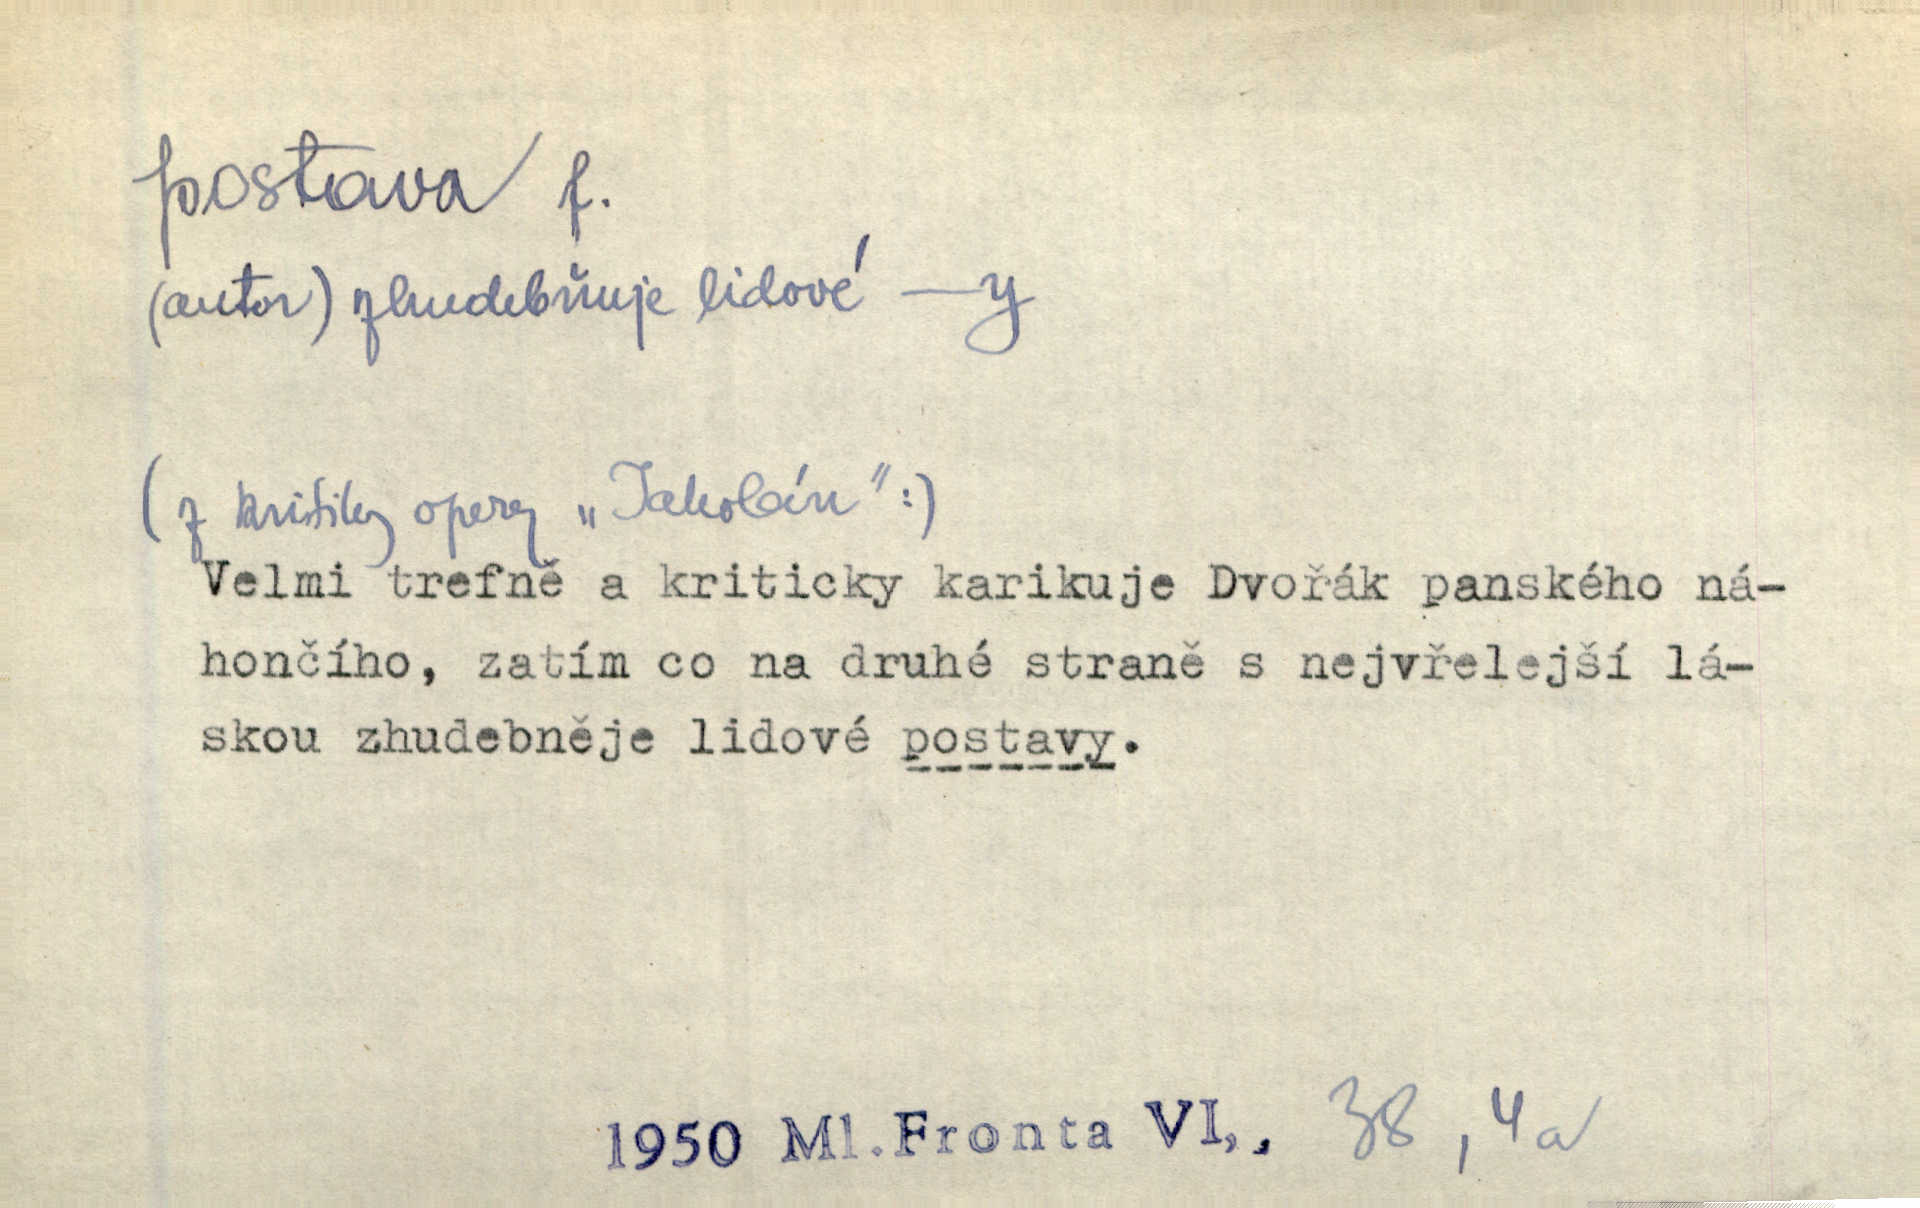 postava f.
(autor) zhudebňuje lidové —y
(z kritiky opery „Jakobín":)
Velmi trefně a kriticky karikuje Dvořák panského ná-
hončího, zatím co na druhé straně s nejvřelejší lá-
skou zhudebněje lidové postavy.
1950 Ml.Fronta VI,, 38, 4a